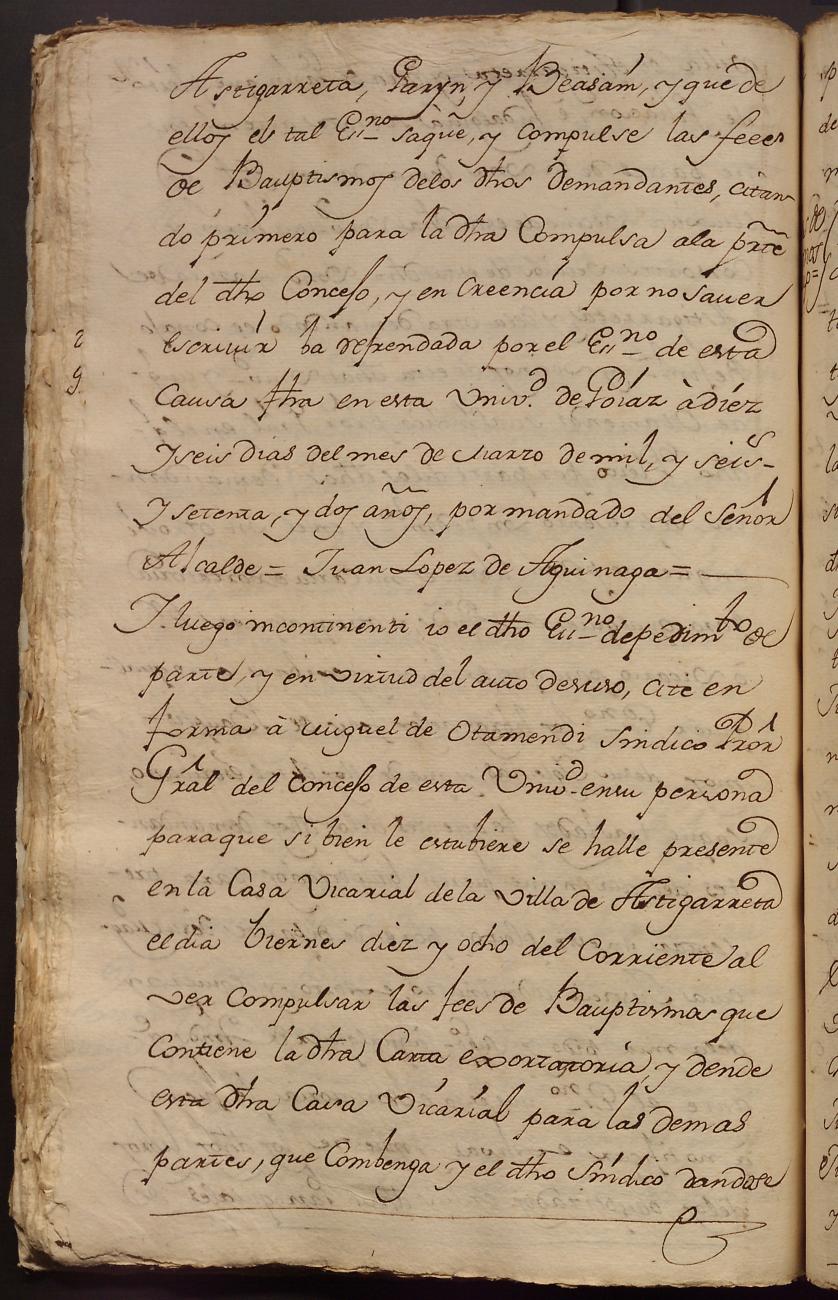 Astigarreta, Garyn, y Beasaim, y que de
ellos el tal Essno saque, y compulse las feees
de Bauptismos delos dhos demandantes, citan
do primero para la dha Compulsa ala prte
del dho Concejo, y en Creencia por no saver
escriuir ba defrendada por el Essno de esta
Causa fha en esta Univd de Gdiaz à diez
y seis dias del mes de Marzo de mil, y seiss
y setenta, y dos años, por mandado del Señor
Alcalde = Juan Lopez de Aguinaga =
Y luego incontinenti io el dho Essno de pedimto de
parte, y en virtud del auto desuso, cite en
forma à Miguel de Otamendi sindico Pror
Gral del Concejo de esta Univd en su persona
para que si bien le estubiere se halle presente
en la Casa Vicarial dela Villa de Astigarreta
el dia biernes diez y ocho del Corriente al
ver Compulsar las fees de Bauptismos que
Contiene la dha Carta exortatoria, y dende
esta dha Casa Vicarial para las demas
partes, que Combenga y el dho sindico dandose